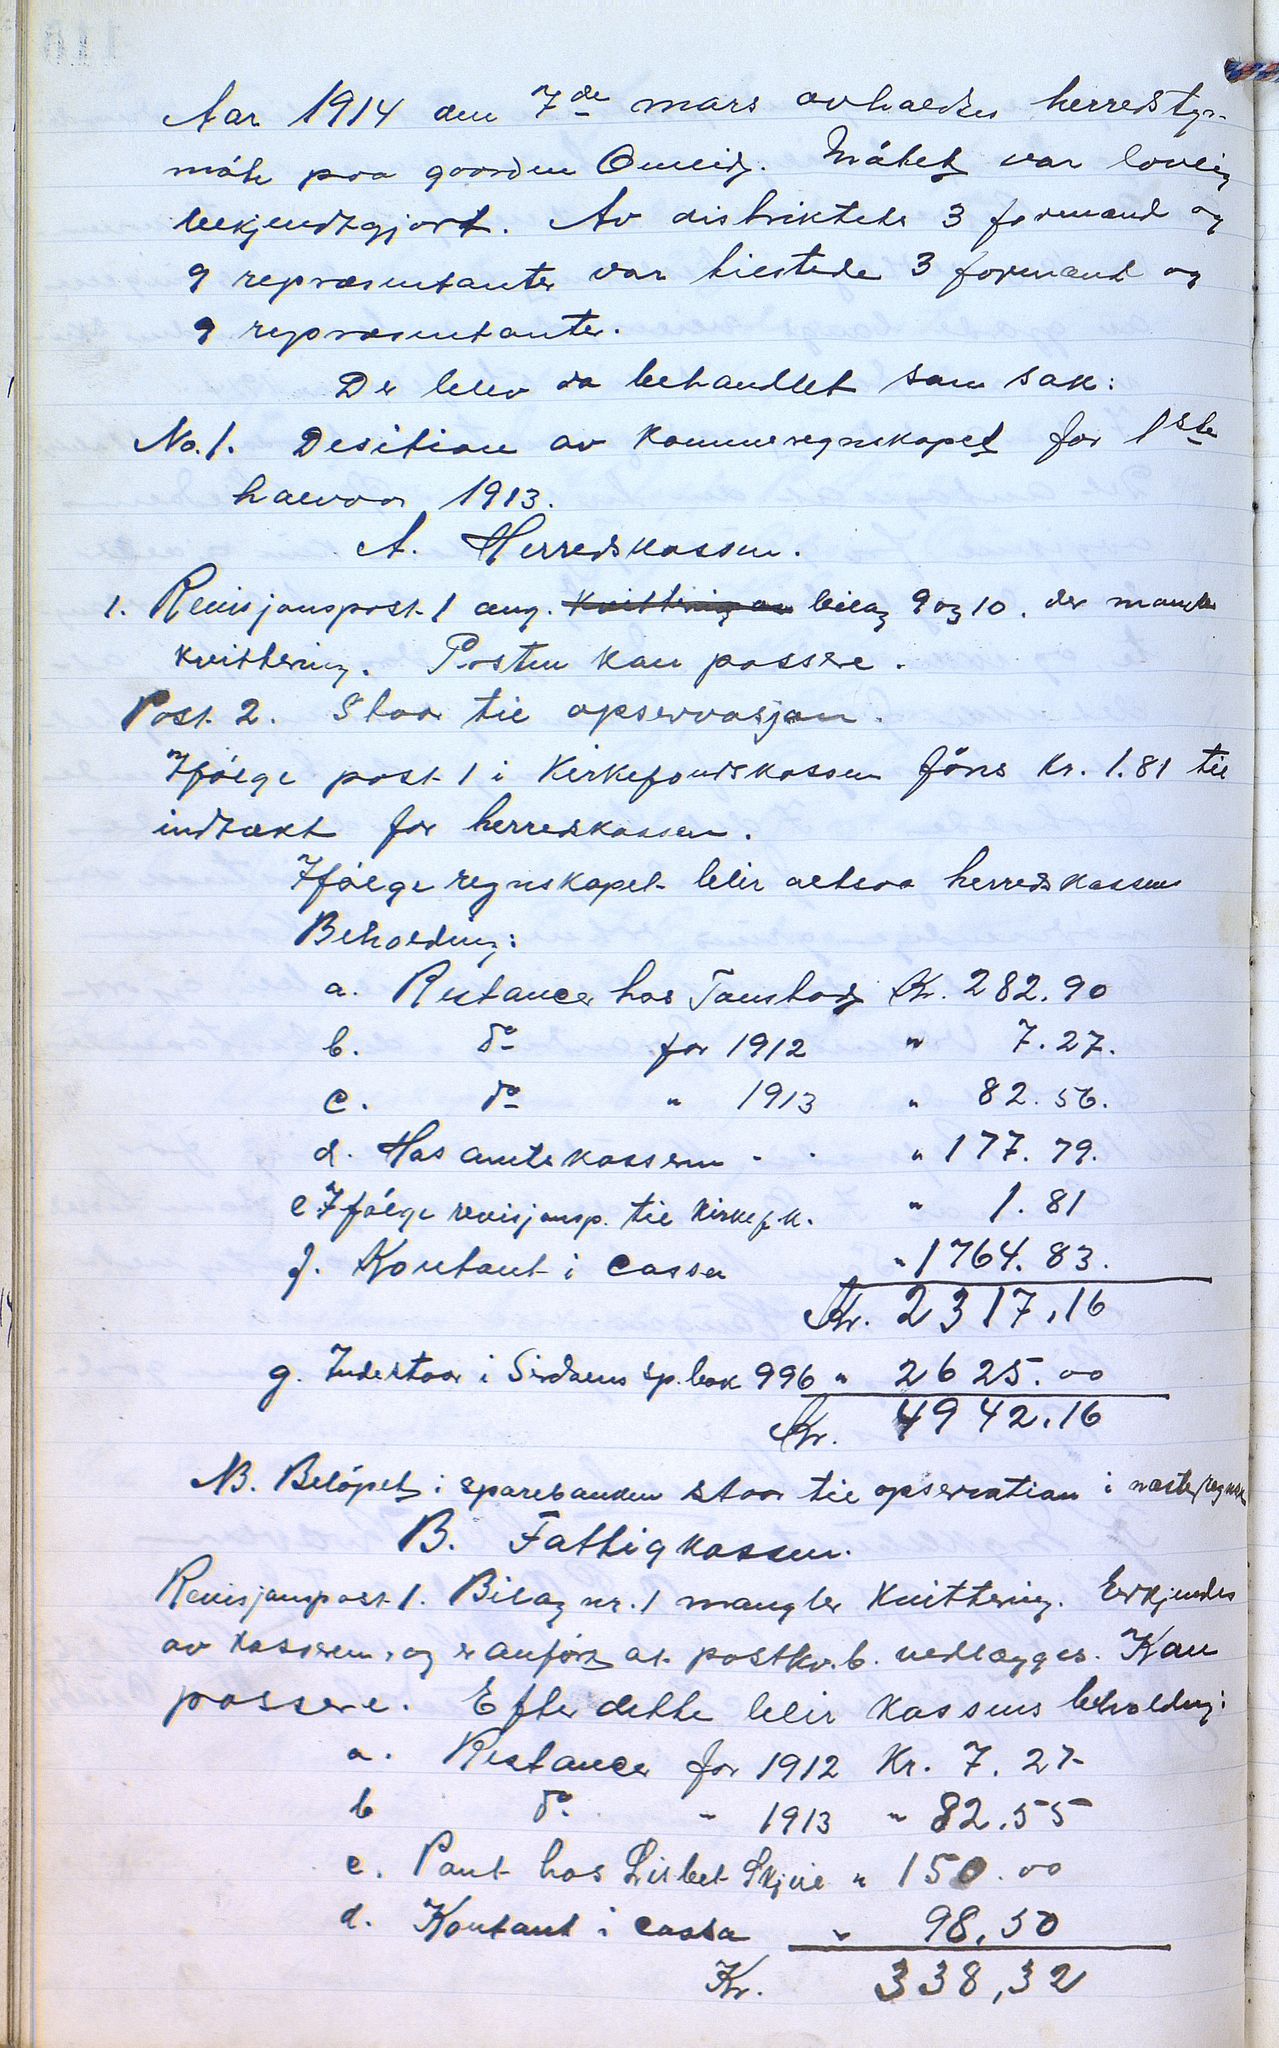 Aar 1914 den 7de mars avholdtes herredsty-
møte paa gaarden Omlid. Møtet var lovlig
bekjendtgjort. Av distriktets 3 formænd og
9 repræsentanter var tilstede 3 formænd og
9 repræsentanter.
Der blev da behandlet som sak:
No. 1. Desition av kommuneregnskapet for 1ste
halvaar 1913.
A. Herredskassen.
1. Revisjonspost 1 ang. kvittering av bilag 9 og 10. der mangler
kvittering. Posten kan passere.
Post. 2. Staar til opservasjon.
Ifølge post 1 i Kirkefondskassen føres kr. 1.81 til
indtækt for herredskassen.
Ifølge regnskapet blir altsaa herredskassens
Beholdning:
a. Restancer hos Tonstad Kr. 282.90
b. do for 1912 " 7.27.
c. do " 1913 " 82.56.
d. Hos amtskassen - - " 177.79.
e Ifølge revisjonsp. til Kirkef.k. " 1.81
f. Kontant i cassa " 1764.83.
Kr. 2317,16
g. Indestaar i Sirdalens sp.bak 996 " 2625.00
Kr. 4942,16
NB. Beløpet i sparebanken staar til opservation i næste regnsk
B. Fattigkassen.
Revisjonspost 1. Bilag nr. 1 mangler kvittering. Erkjendes
av kasseren, og er anført at postkv.b. vedlægges. Kan
passere. Efter dette blir kassens beholdning:
a. Restancer for 1912 Kr. 7.27
b do. " 1913 " 82.55
c. Pant hos Lisbet Skjeie " 150.00
d. Kontant i cassa " 98,50
Kr. 338,32